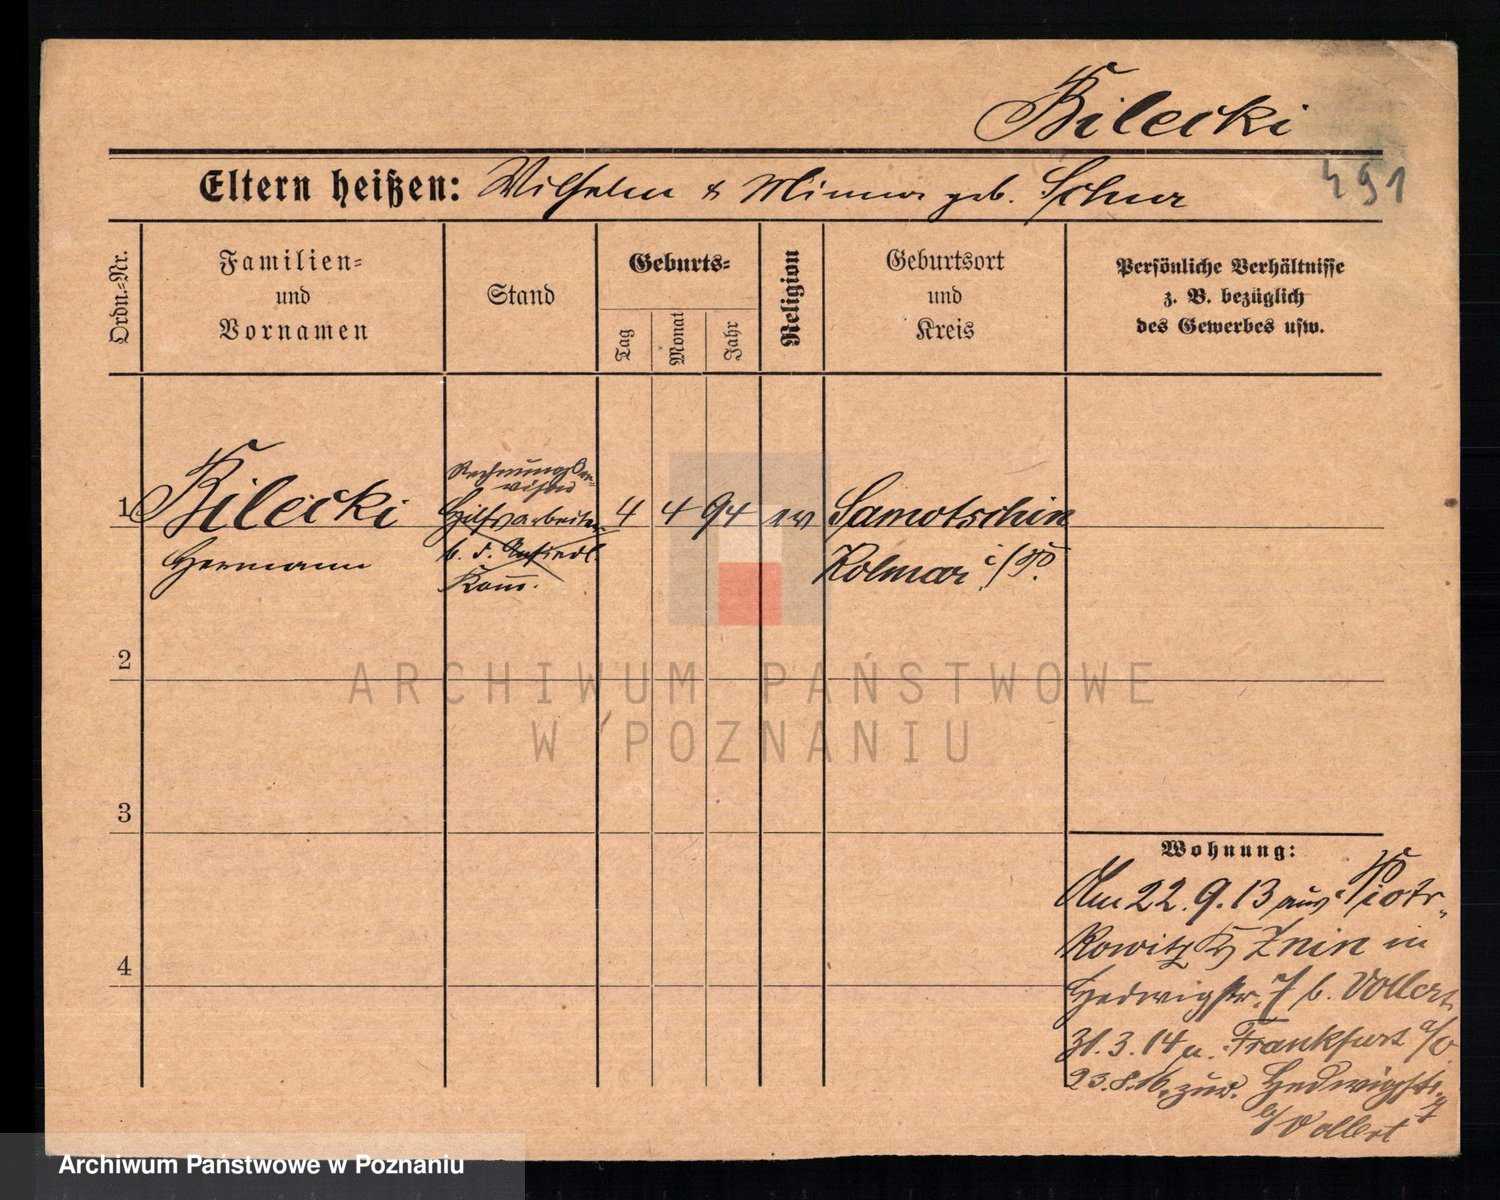 Bilecki
Eltern heißen: Wilhelm & Minna geb. Schur
491
Ordn.-Nr.
Familien-
und
Vornamen
Stand
Geburts-
Tag
Monat
Jahr
Religion
Geburtsort
und
Kreis
Persönliche Verhältnisse
z. B. bezüglich
des Gewerbes usw.
1
Bilecki
Hermann
Hilfsarbeiter
b. d. Ansiedl.
Kom.
4 4 94 ev
Samotschin
Kolmar i/P.
2
3
4
Wohnung:
Am 22.9.13 aus Piotr-
kowitz Znin in
Hedwigstr. 7 b. Vollert
31.3.14 n. Frankfurt a/O
23.8.16. zur. Hedwigstr. 7
b/ Vollert
ARCHIWUM PAŃSTWOWE
W POZNANIU
Archiwum Państwowe w Poznaniu